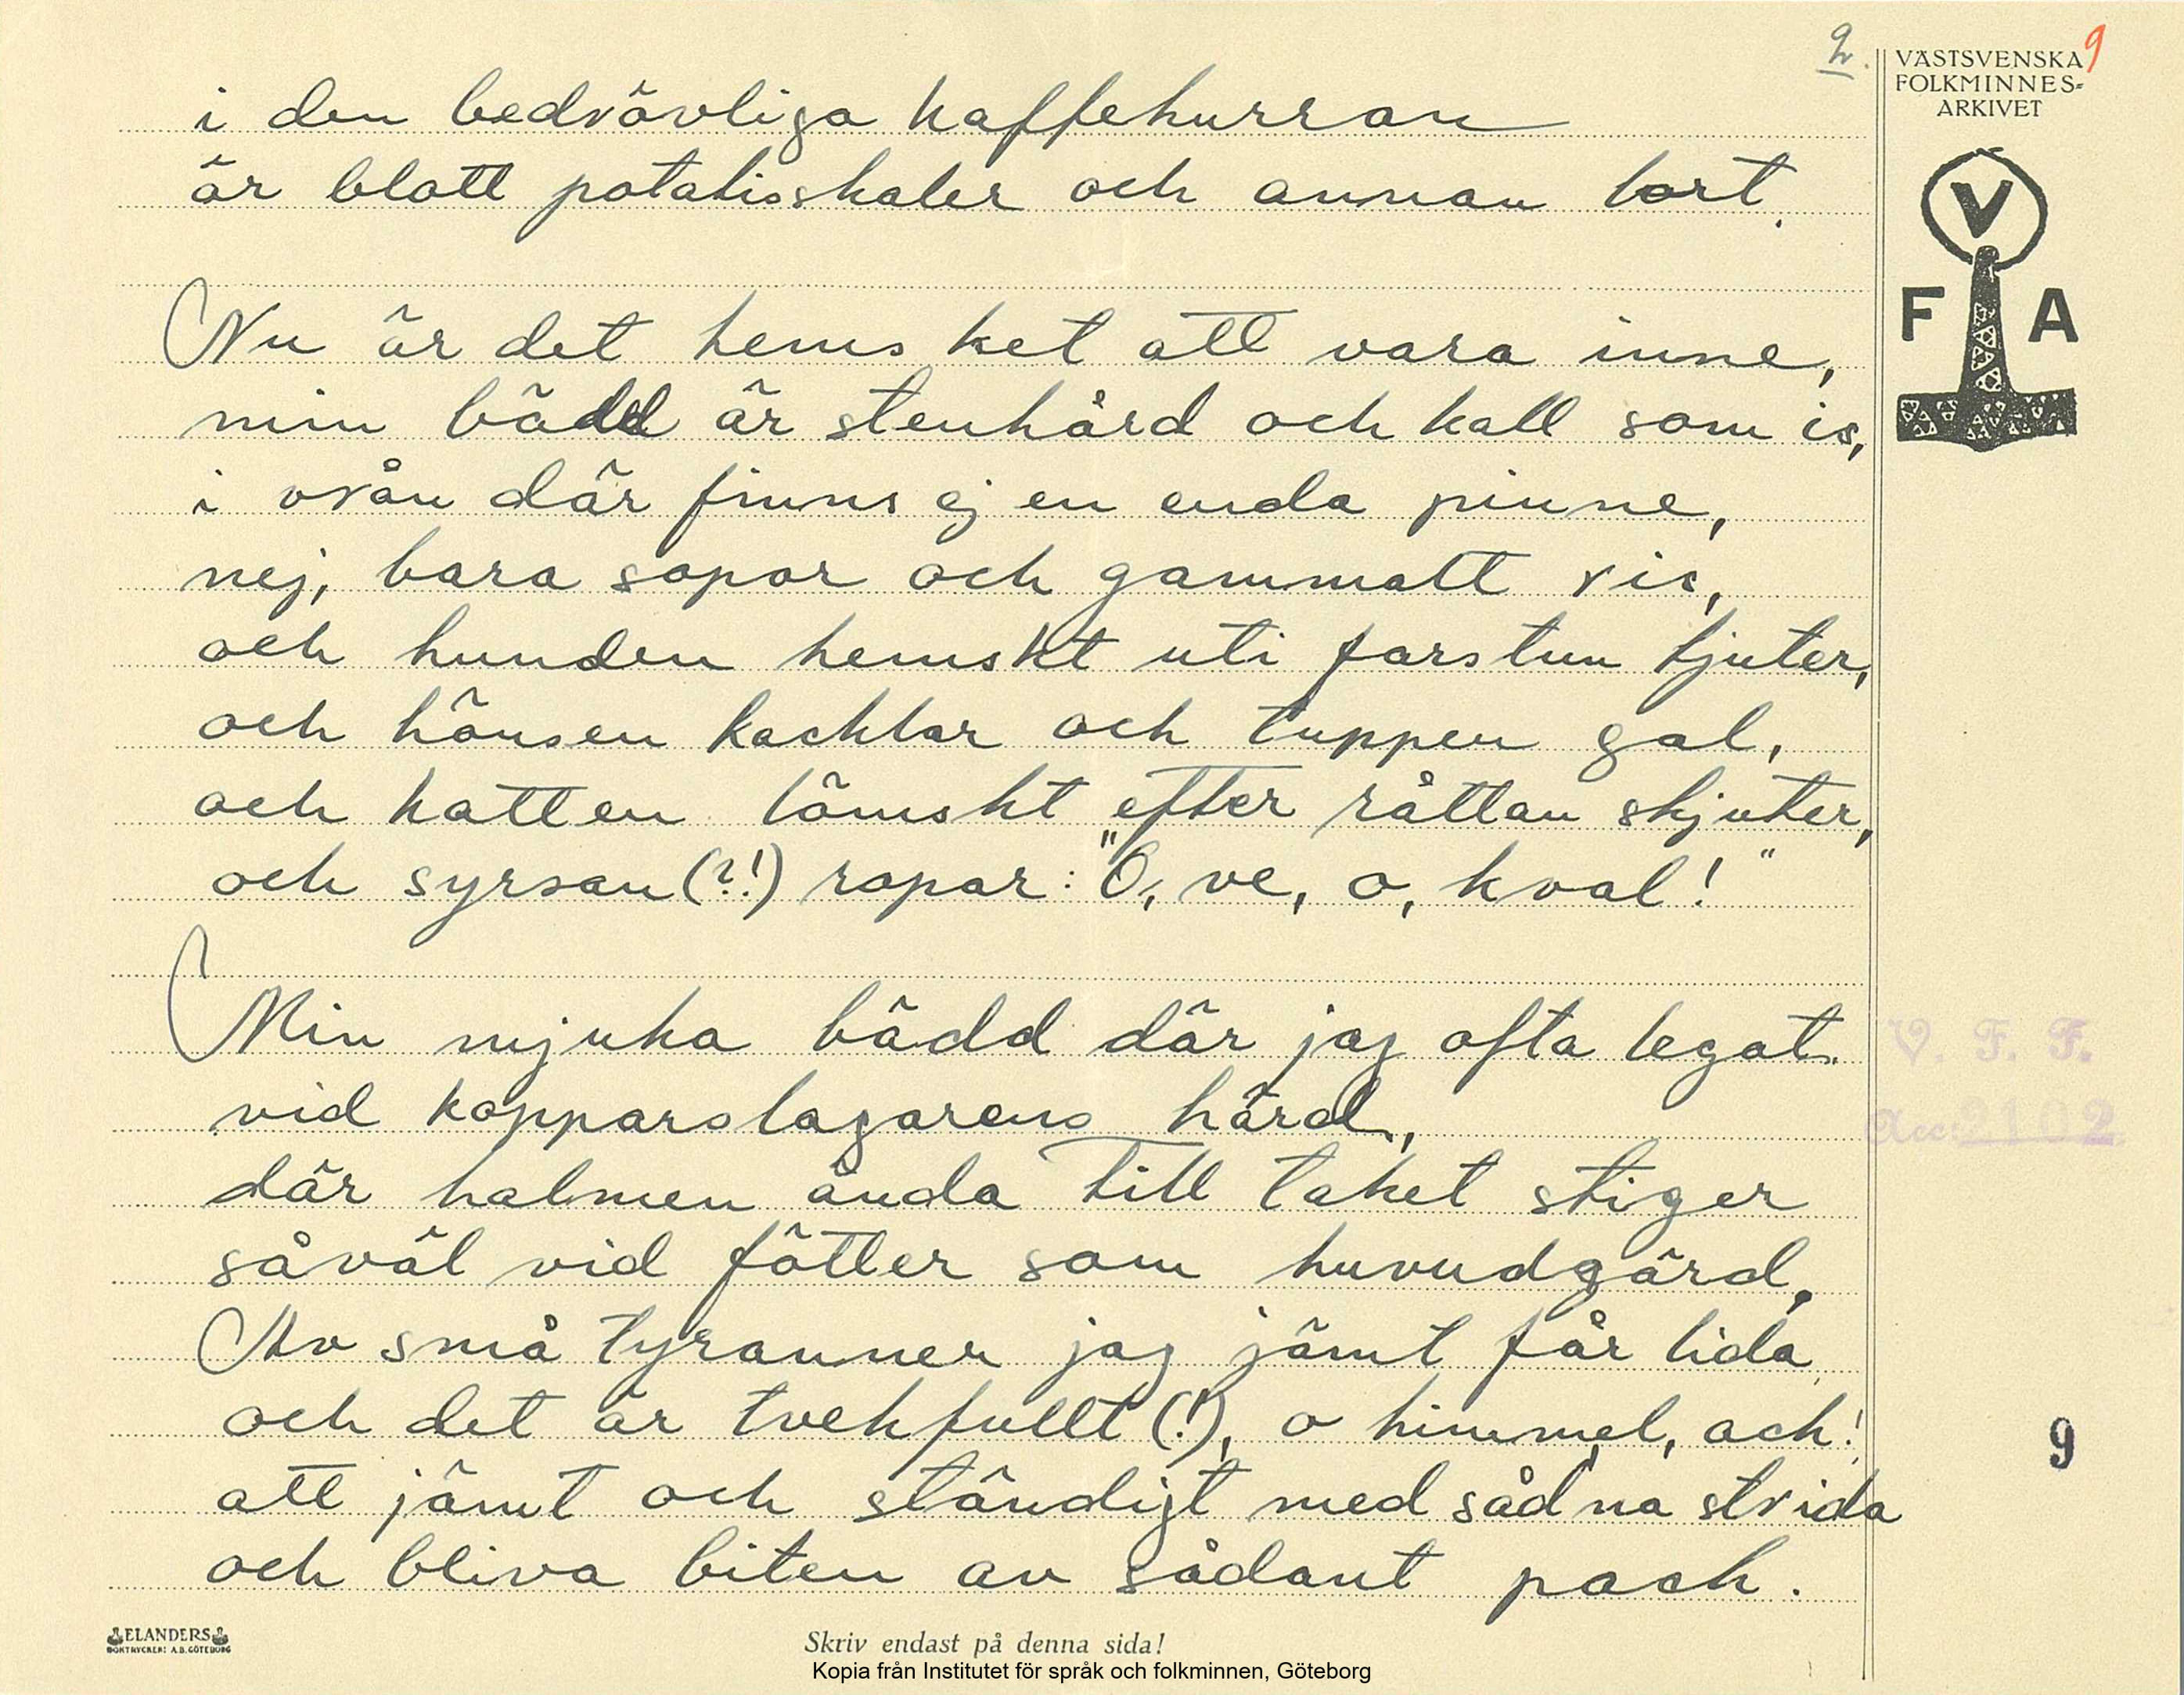 2.
9
VÄSTSVENSKA
FOLKMINNES-
ARKIVET
V
F A
i den bedrövliga kaffehurran
är blott potatisskaler och annan lort.
Nu är det hemsket att vara inne,
min bädd är stenhård och kall som is,
i vrån där finns ej en enda pinne,
nej, bara sopor och gammalt ris,
och hunden hemskt uti farstun tjuter,
och hönsen kacklar och tuppen gal,
och katten lömskt efter råttan skjuter,
och syrsan (?!) ropar: "O, ve, o, kval!"
Min mjuka bädd där jag ofta legat
vid kopparslagarens härd,
där halmen ända till taket stiger
såväl vid fötter som huvudgärd.
Av små tyranner jag jämt får lida
och det är tvekfullt (!), o himmel, ack!
att jämt och ständigt med sådna strida
och bliva biten av sådant pack.
V. F. F.
Acc. 2102
9
ELANDERS
BOKTRYCKERI A.B. GÖTEBORG
Skriv endast på denna sida!
Kopia från Institutet för språk och folkminnen, Göteborg